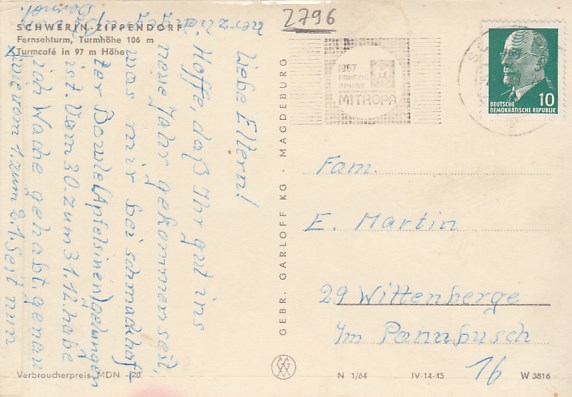 2796
SCHWERIN-ZIPPENDORF
Fernsehturm, Turmhöhe 106 m
Turmcafé in 97 m Höhe
Liebe Eltern!
Hoffe daß Ihr gut ins
neue Jahr gekommen seid,
was mir bei schmackhafter
Bowle (Apfelsinen) gelungen
ist. Vom 30. zum 31.12. habe
ich Wache gehabt, genau
wie vom 1. zum 2.1. Seit nun
Verbraucherpreis MDN -.20
GEBR. GARLOFF KG · MAGDEBURG
1967
MITROPA
10
DEUTSCHE
DEMOKRATISCHE REPUBLIK
Fam.
E. Martin
29 Wittenberge
Im Pannbusch
16
N 1/64
IV-14-45
W 3816